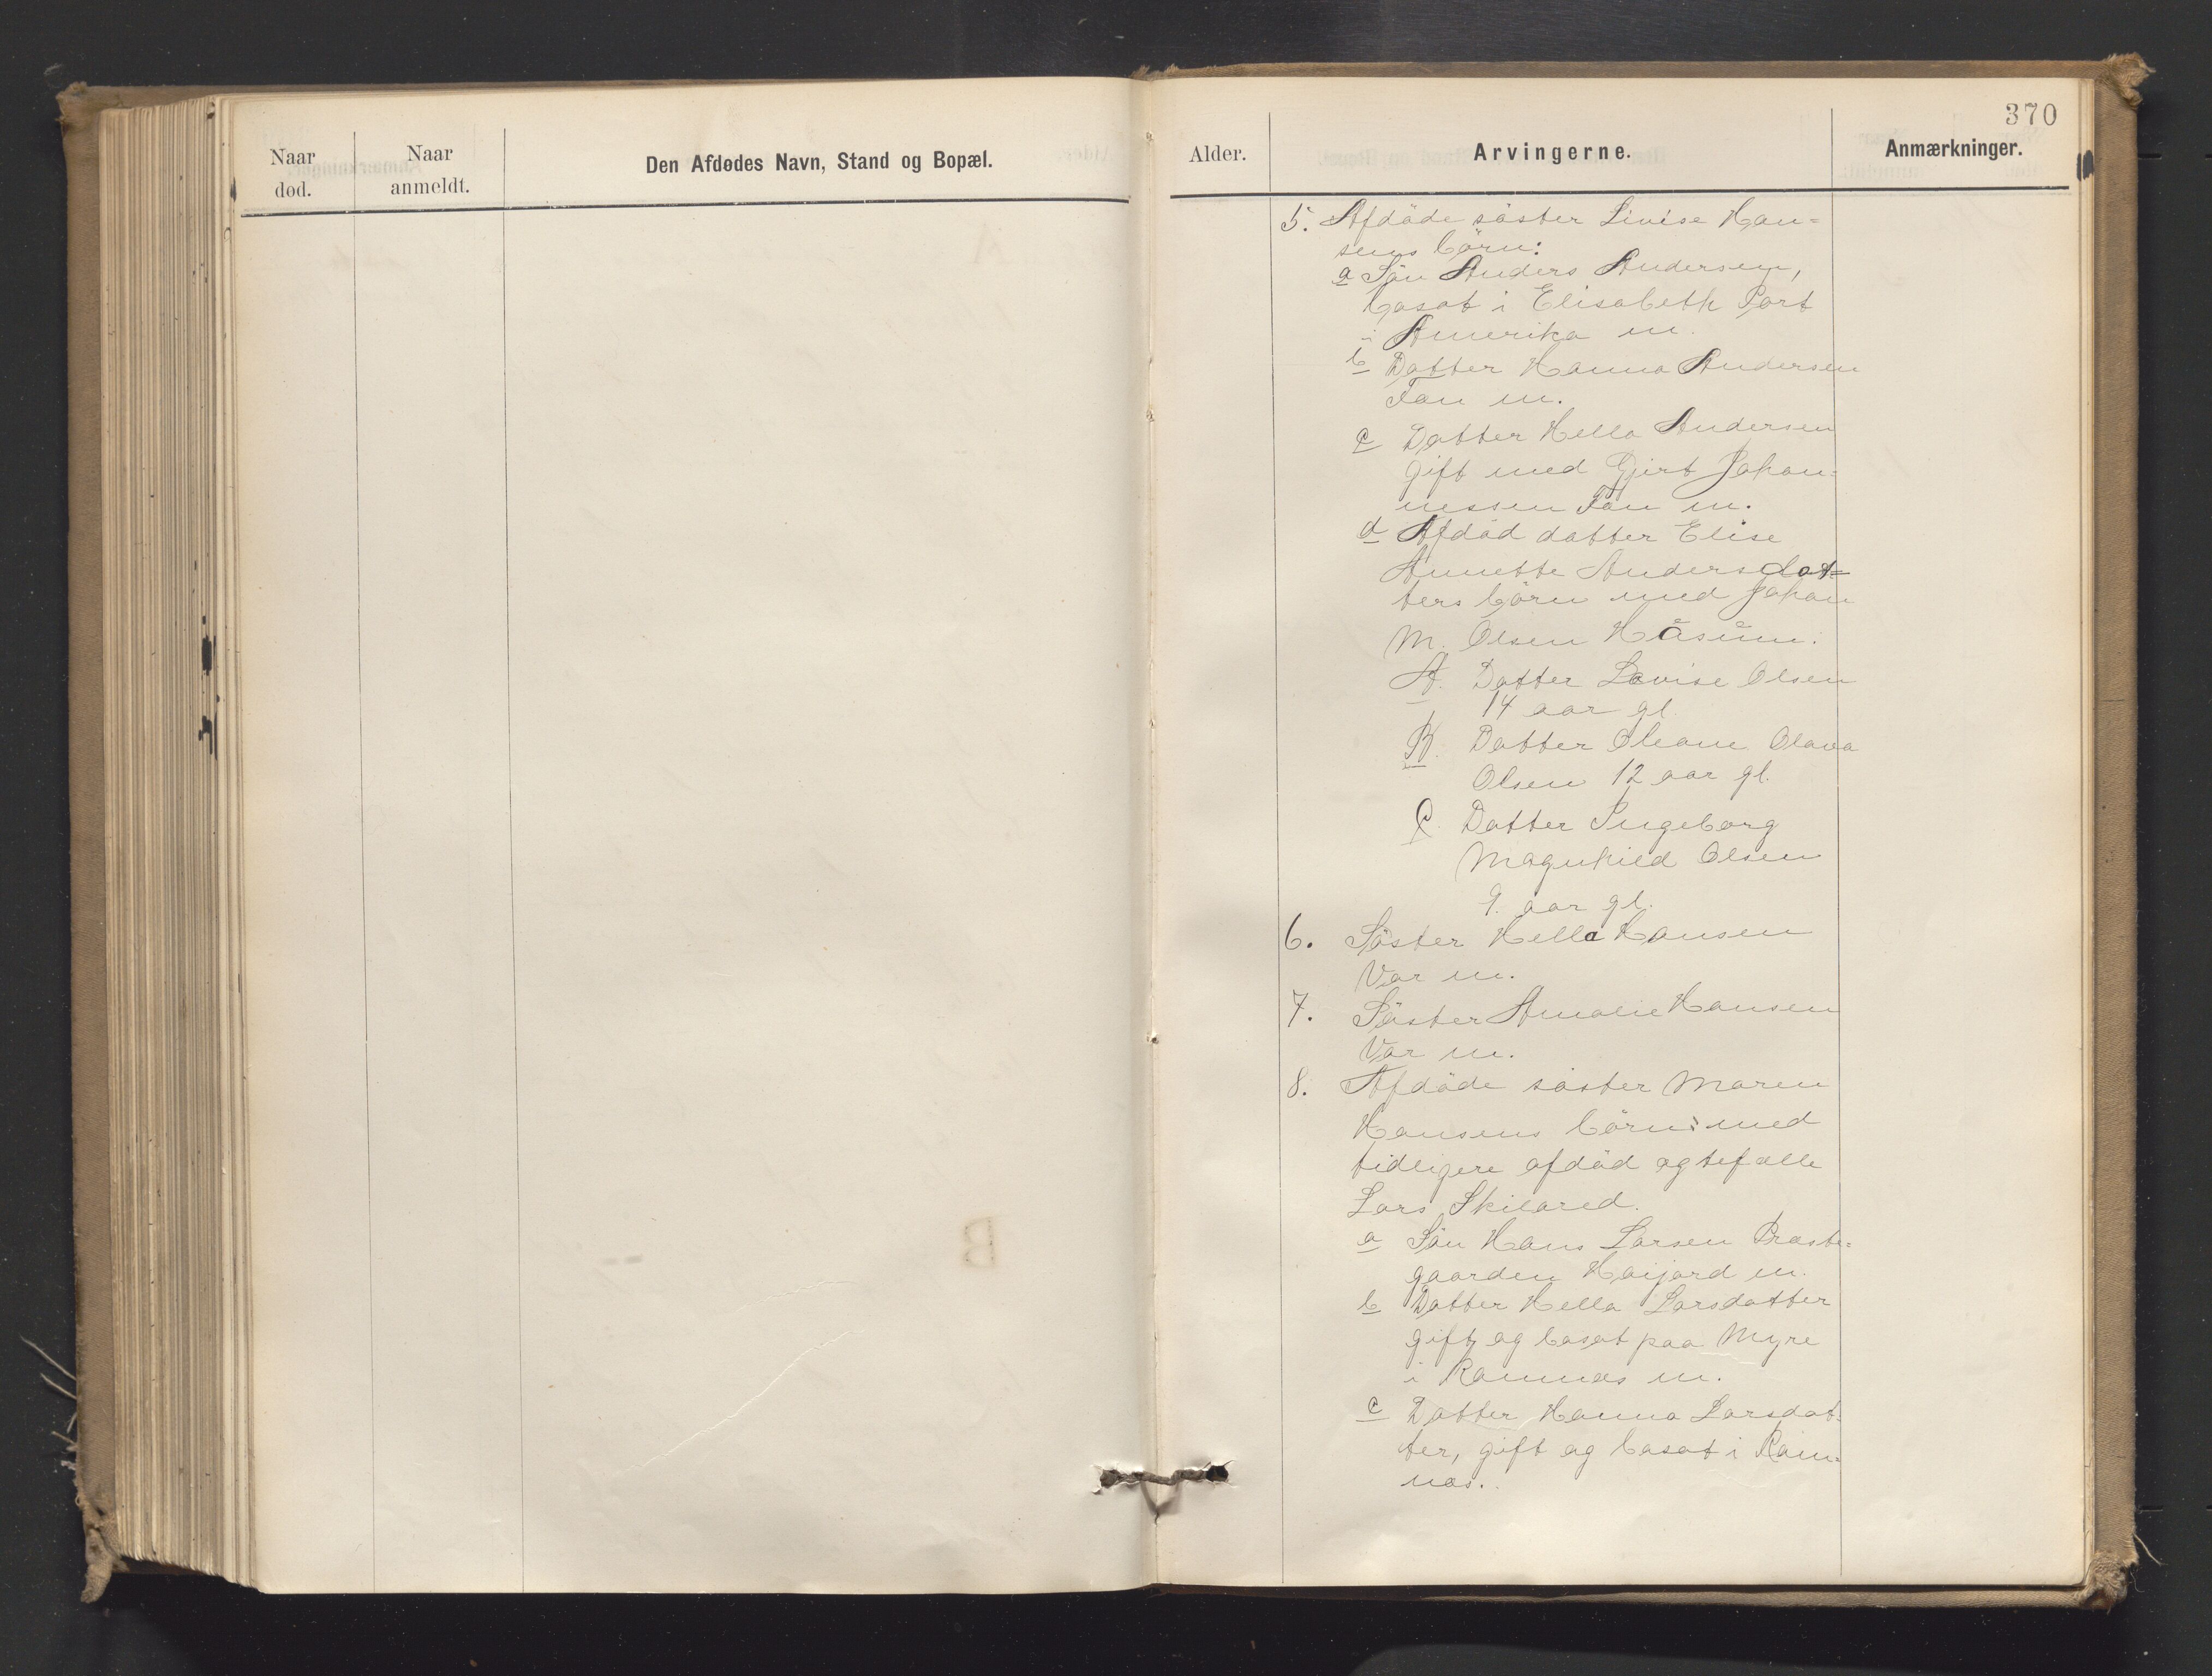 370
Naar død.
Naar anmeldt.
Den Afdødes Navn, Stand og Bopæl.
Alder.
Arvingerne.
Anmærkninger.
5. Afdöde söster Livise Han=
sens börn:
a Sön Anders Andersen,
bosat i Elisabeth Port
i Amerika m.
b Datter Hanna Andersen
Fon m.
c Datter Hella Andersen
gift med Gjert Johan=
nessen Fon m.
d Afdöd datter Elise
Annette Andersdat=
ters börn med Johan
M. Olsen Håsum:
A. Datter Lovise Olsen
14 aar gl.
B. Datter Oleane Olava
Olsen 12 aar gl.
C. Datter Ingeborg
Magnhild Olsen
9. aar gl.
6. Söster Hella Hansen
Vær m.
7. Söster Amalie Hansen
Vær m.
8. Afdöde söster Maren
Hansens börn: med
tidligere afdöd ægtefælle
Lars Skilared.
a Sön Hans Larsen Præste=
gaarden Høijord m.
b Datter Hella Larsdatter
gift og bosat paa Myre
i Ramnæs m.
c Datter Hanna Larsdat=
ter, gift og bosat i Ram=
næs.
B